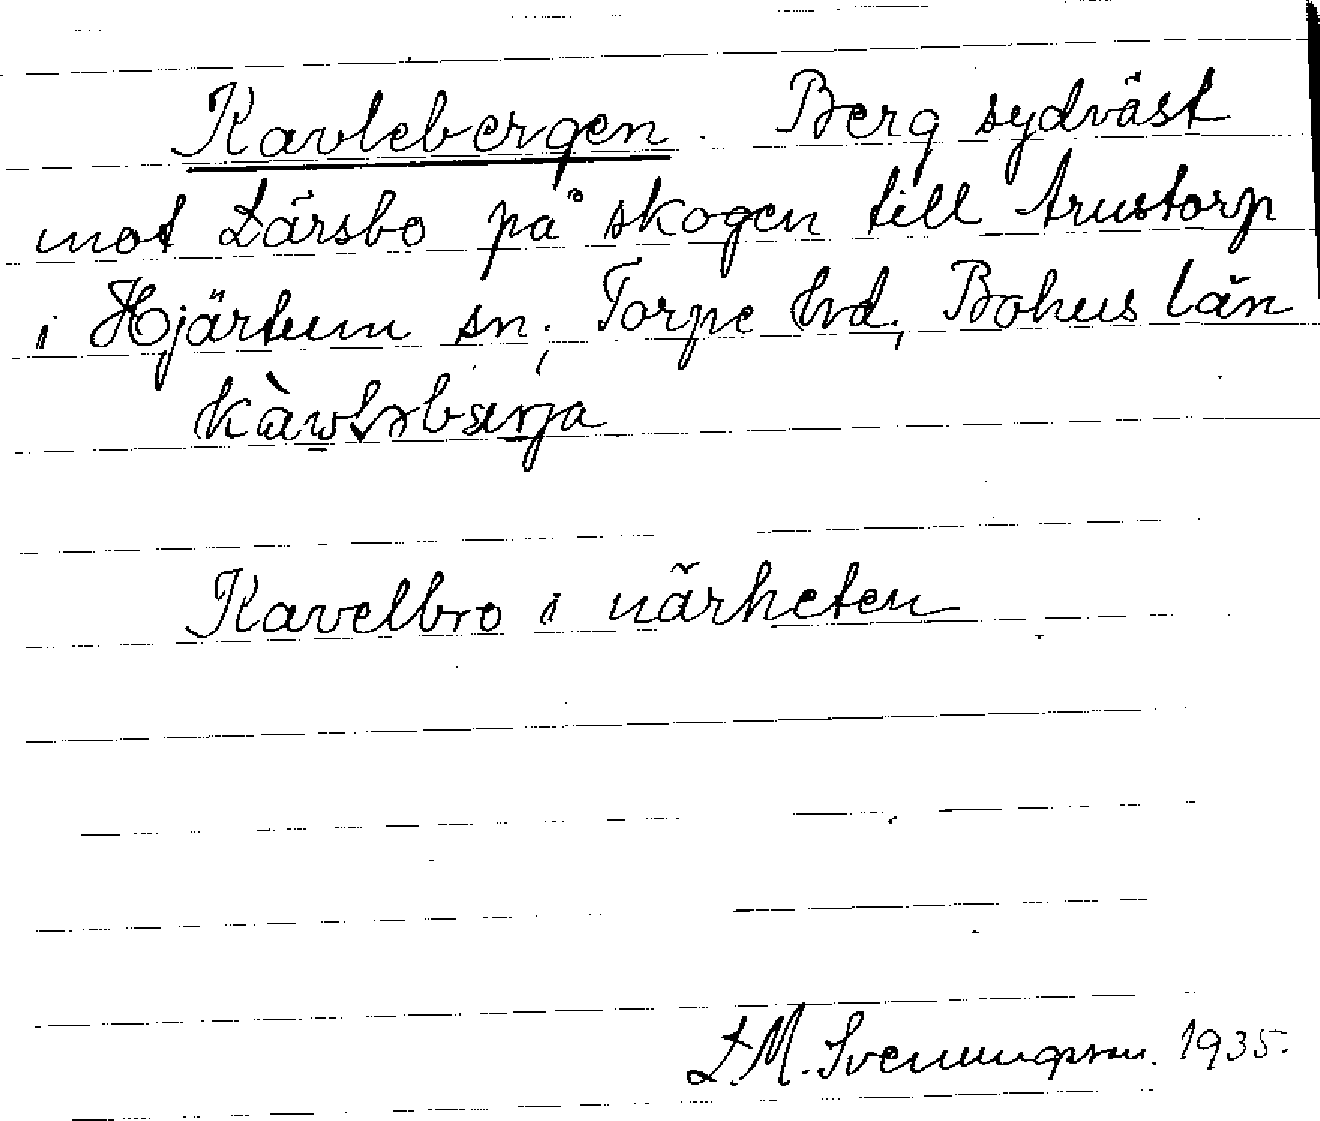 Kavlebergen. Berg sydväst
mot Lärsbo på skogen till Arustorp
i Hjärtum sn; Torpe hd, Bohus län
Kavelbro i närheten
L.M. Svenungsson. 1935.